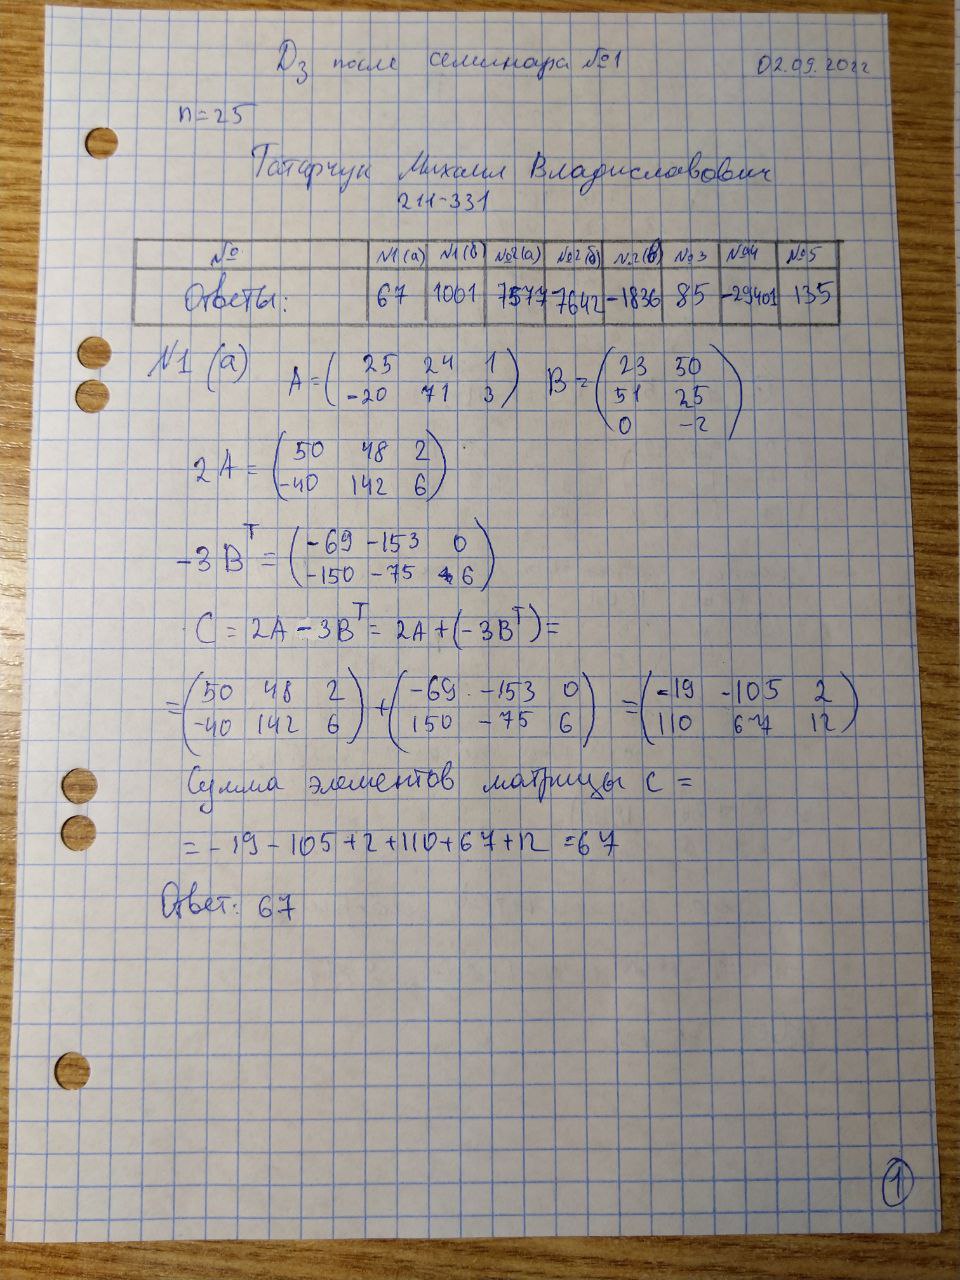 Дз после семинара №1 02.09.2022
n=25
Татарчук Михаил Владиславович
211-331
№ №1(а) №1(б) №2(а) №2(б) №2(в) №3 №4 №5
Ответы: 67 1001 7577 -7642 -1836 85 -29401 135
№1 (а) A = ( 25 24 1 ) B = ( 23 50 )
-20 71 3 51 25
0 -2
2A = ( 50 48 2 )
-40 142 6
-3B^T = ( -69 -153 0 )
-150 -75 6
C = 2A - 3B^T = 2A + (-3B^T) =
= ( 50 48 2 ) + ( -69 -153 0 ) = ( -19 -105 2 )
-40 142 6 150 -75 6 110 67 12
Сумма элементов матрицы C =
= -19 - 105 + 2 + 110 + 67 + 12 = 67
Ответ: 67
1